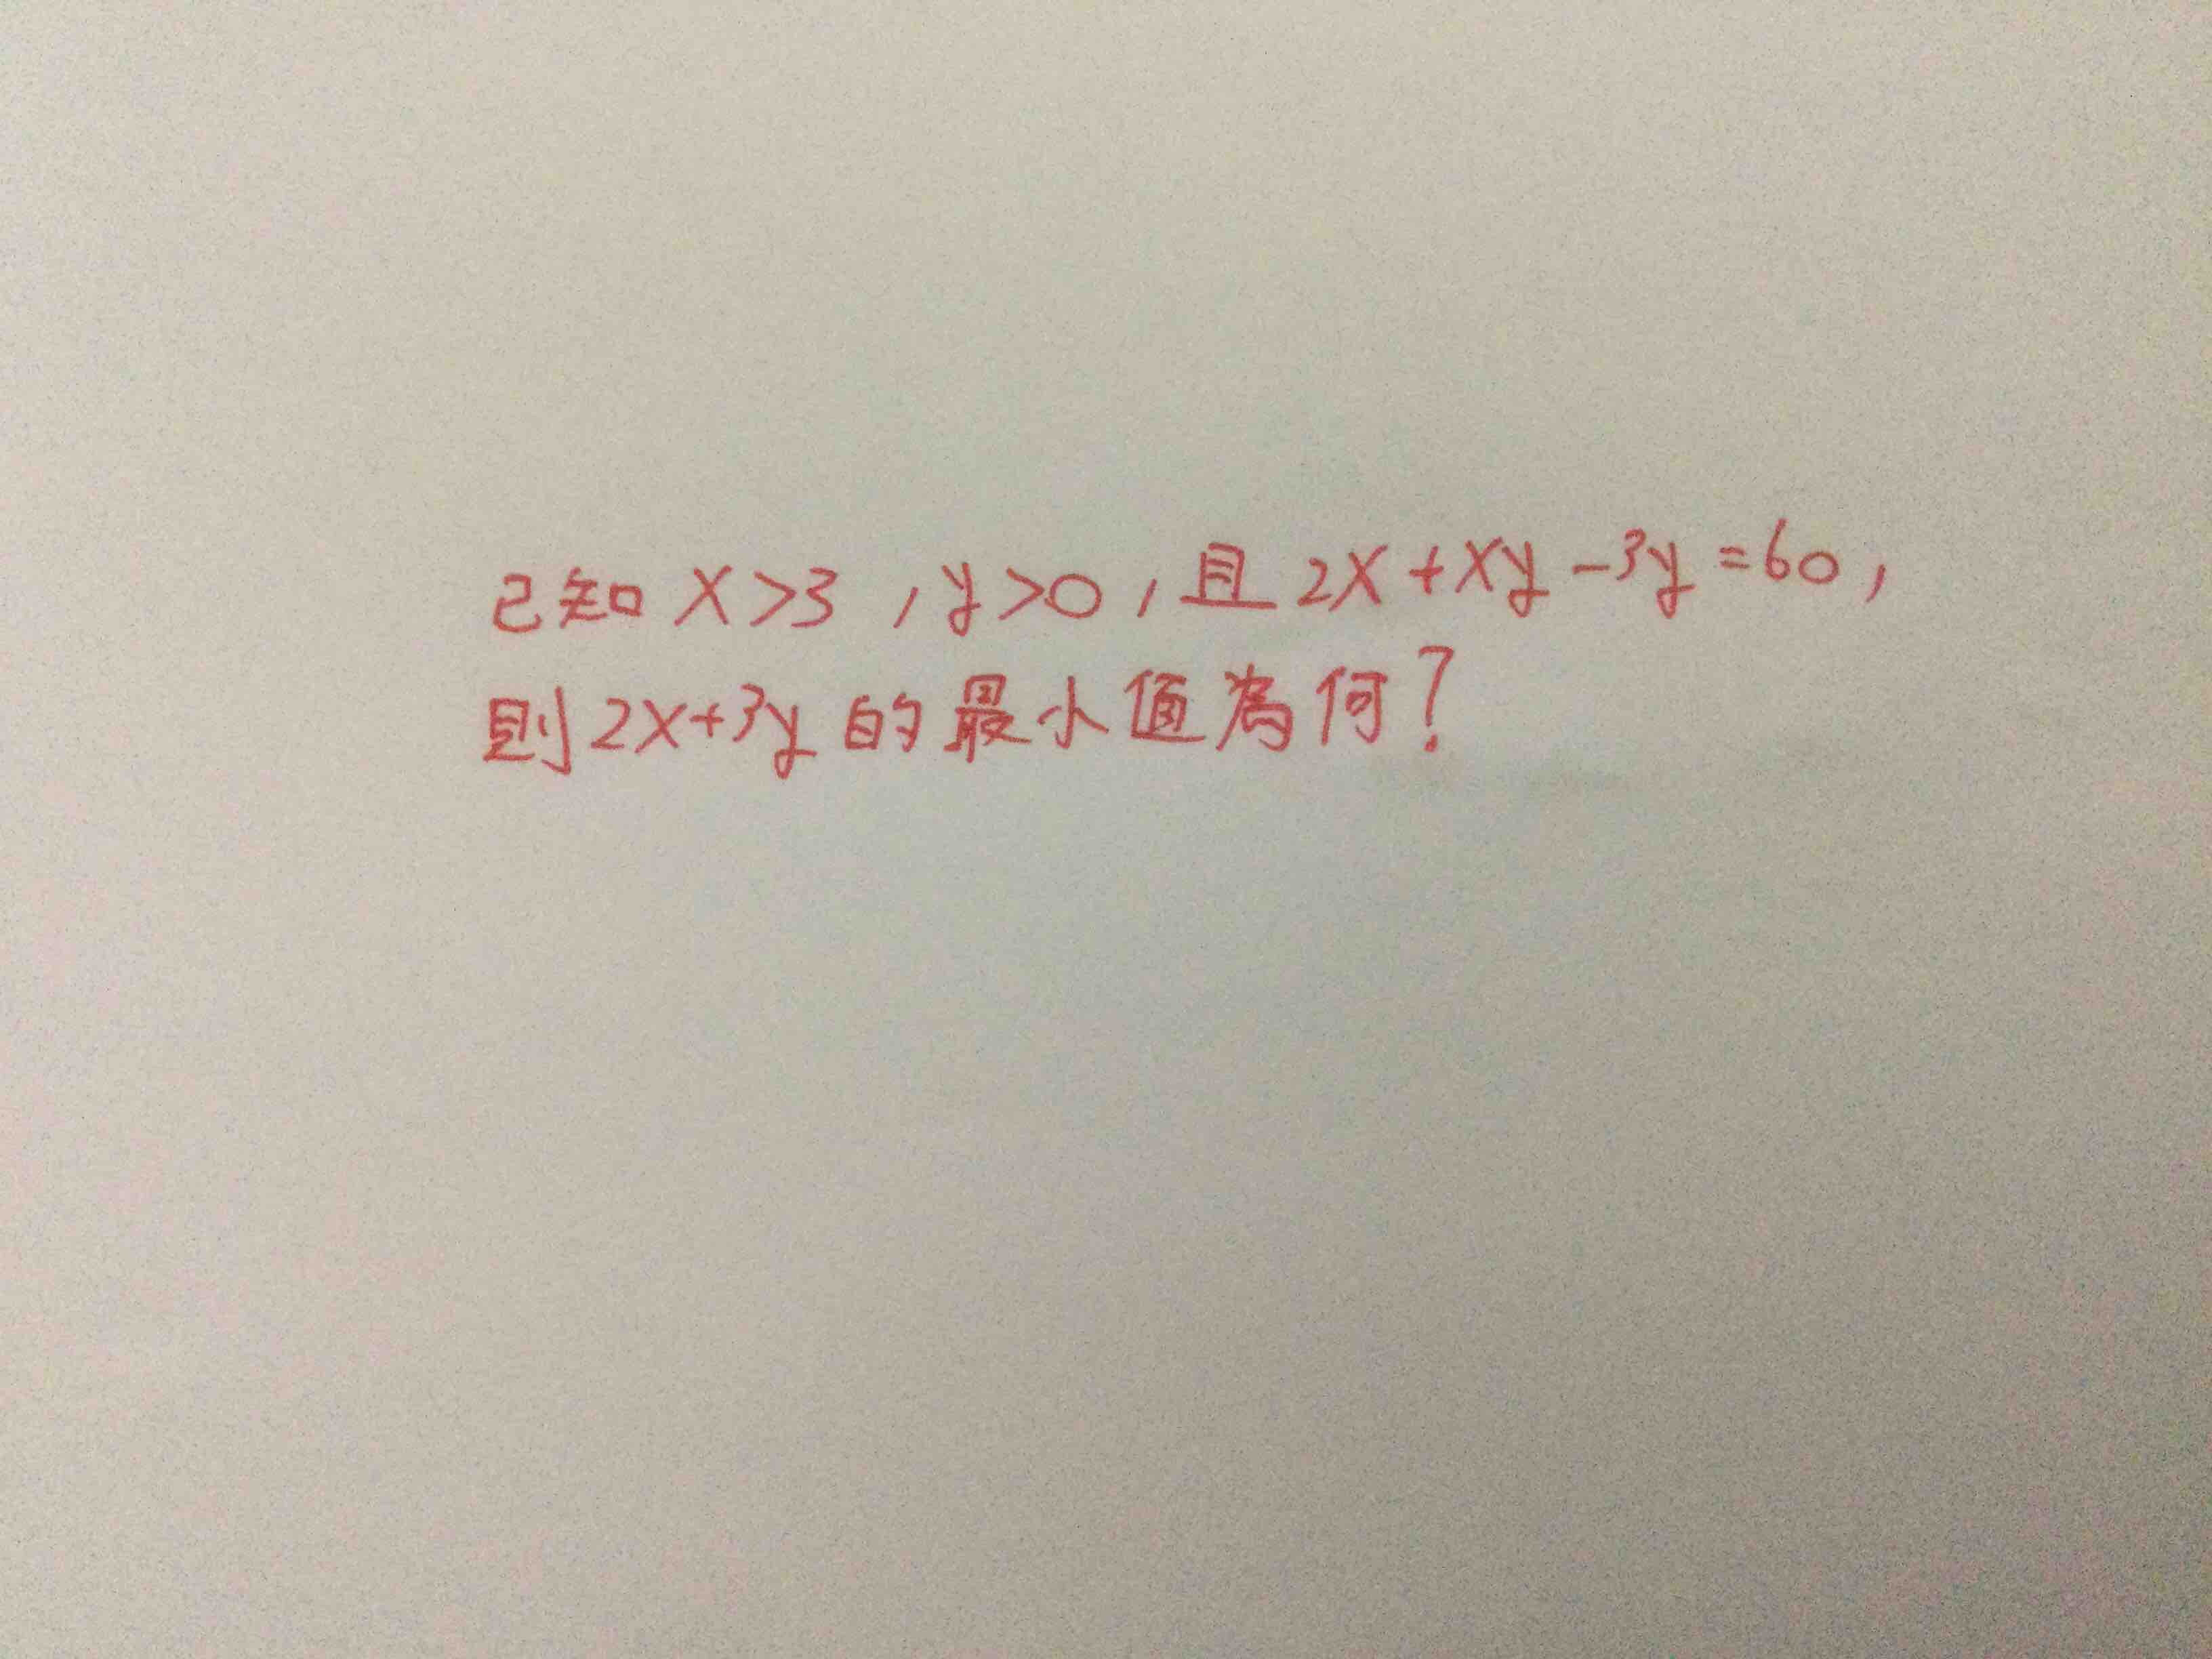 已知 x>3 , y>0 , 且 2x+xy-3y=60 ,
則 2x+3y 的最小值為何?